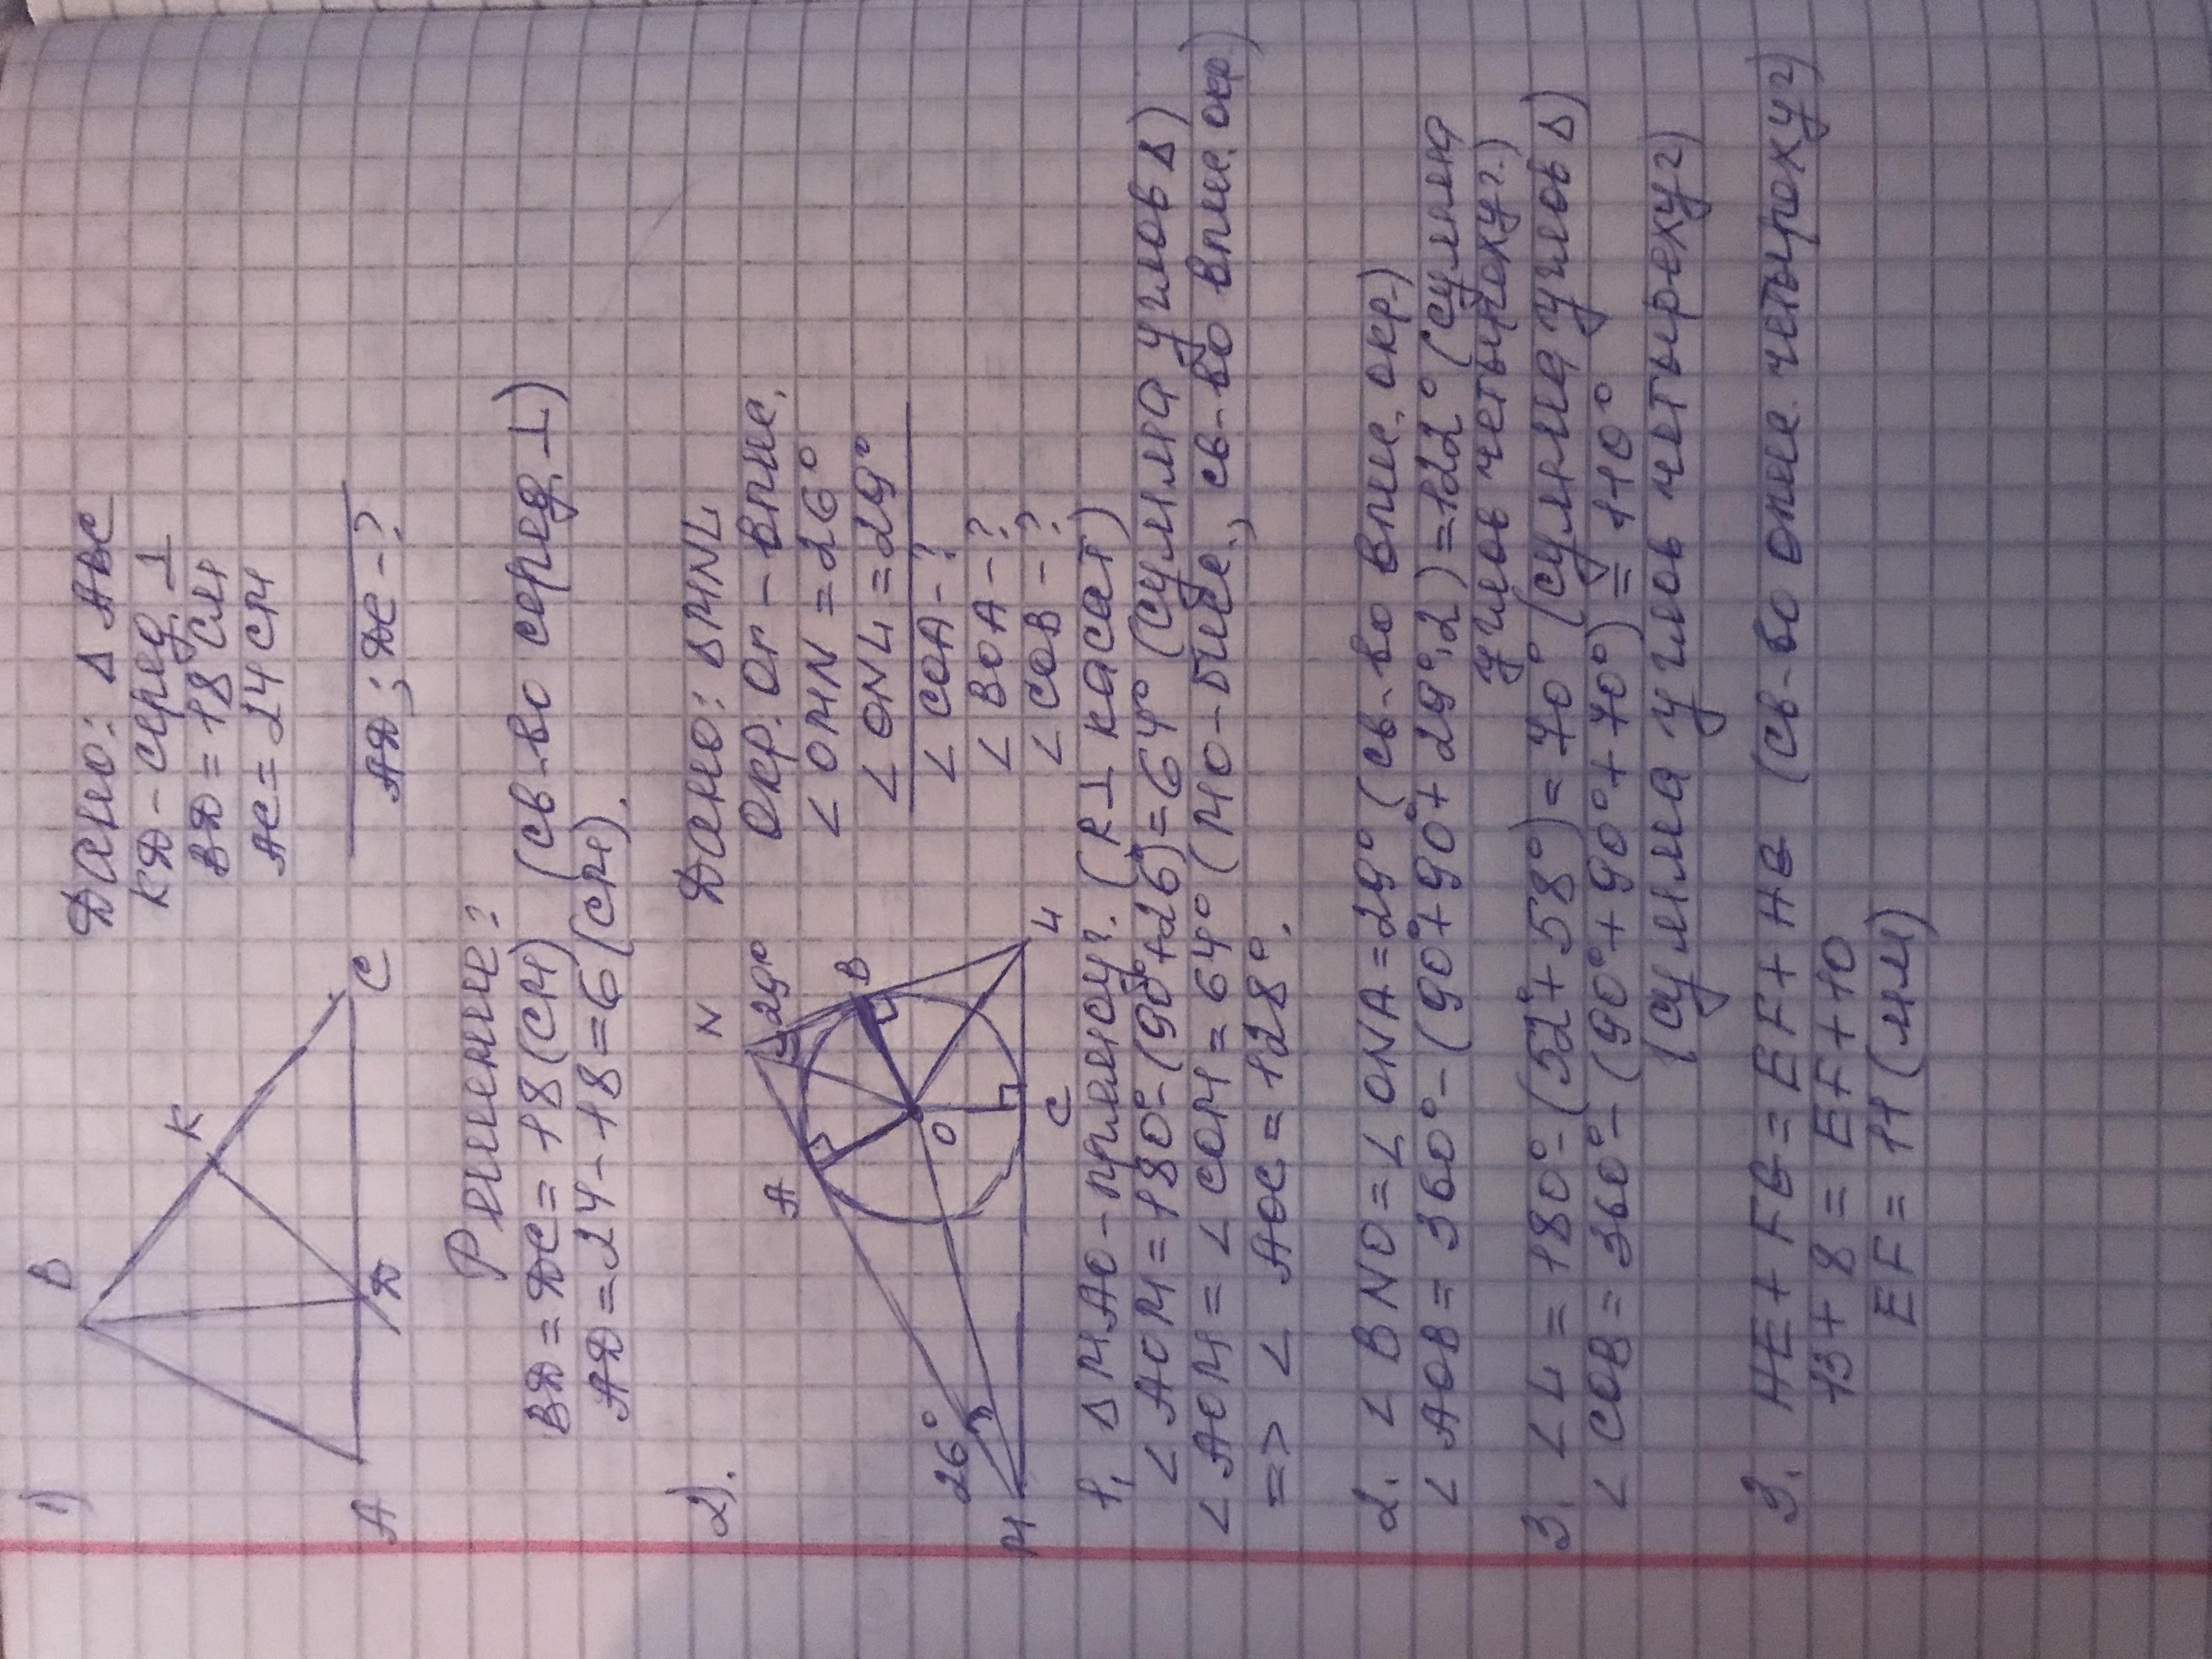 1)
B
K
A
D
C
Дано: Δ ABC
KD - серед. ⊥
BD = 18 см
AC = 24 см
AD; DC - ?
Решение:
BD = DC = 18 (см) (св-во серед. ⊥)
AD = 24 - 18 = 6 (см).
2).
N
29°
A
B
O
26°
M
C
L
Дано: ΔMNL
Окр. Or - впис.
∠ OMN = 26°
∠ ONL = 29°
∠ COA - ?
∠ BOA - ?
∠ COB - ?
1. Δ MAO - прямоуг. (R ⊥ касат)
∠ AOM = 180° - (90° + 26°) = 64° (сумма углов Δ)
∠ AOM = ∠ COM = 64° (MO - бисс., св-во впис. окр)
=> ∠ AOC = 128°.
2. ∠ BNO = ∠ ONA = 29° (св-во впис. окр.)
∠ AOB = 360° - (90° + 90° + 29°·2) = 122° (сумма
углов четыреху г.)
3. ∠ L = 180° - (52° + 58°) = 70° (сумма углов Δ)
∠ COB = 360° - (90° + 90° + 70°) = 110°
(сумма углов четыреху г)
3. HE + FG = EF + HG (св-во опис. четыреху г)
13 + 8 = EF + 10
EF = 11 (мм)